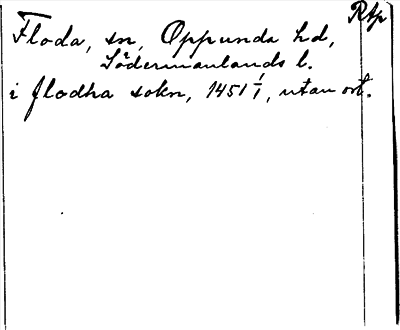 Rtp
Floda, sn, Oppunda hd,
Södermanlands l.
i flodha sokn, 1451 1/1, utan ort.